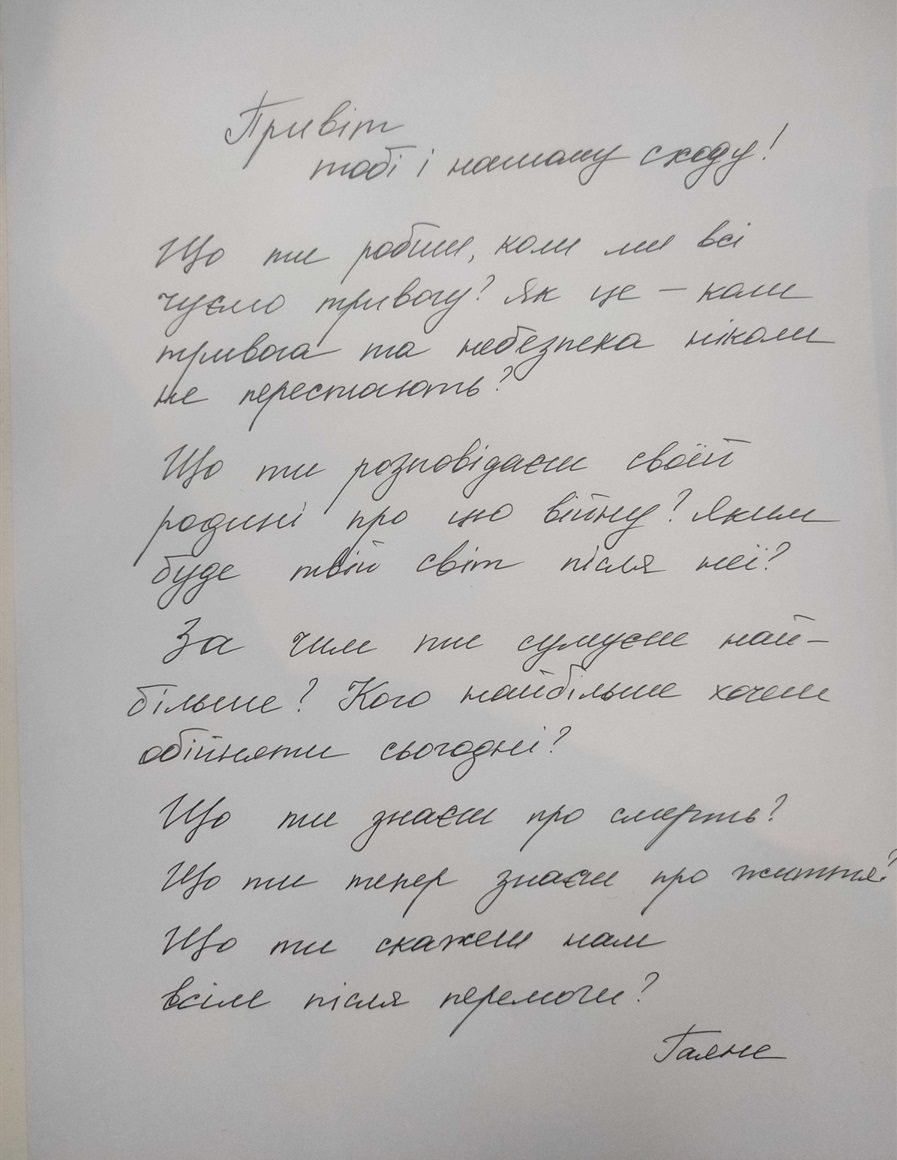 Привіт
тобі і нашому сходу!
Що ти робиш, коли ми всі
чуємо тривогу? Як це – коли
тривога та небезпека ніколи
не перестають?
Що ти розповідаєш своїй
родині про цю війну? Яким
буде твій світ після неї?
За чим ти сумуєш най-
більше? Кого найбільше хочеш
обійняти сьогодні?
Що ти знаєш про смерть?
Що ти тепер знаєш про життя?
Що ти скажеш нам
всім після перемоги?
Гаяне